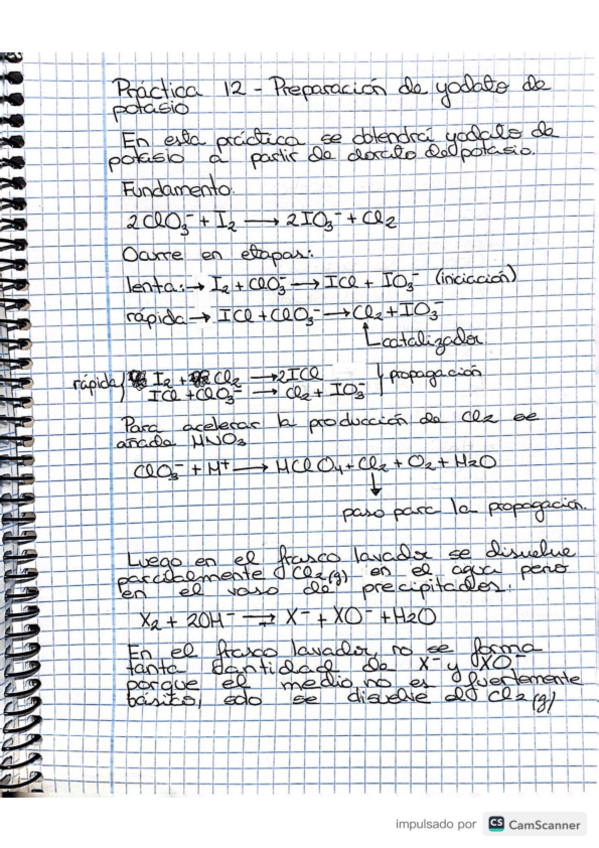 Práctica 12 - Preparación de yodato de
potasio
En esta práctica se obtendrá yodato de
potasio a partir de clorato de potasio.
Fundamento.
2ClO₃⁻ + I₂ ⟶ 2IO₃⁻ + Cl₂
Ocurre en etapas:
lenta: → I₂ + ClO₃⁻ ⟶ ICl + IO₃⁻ (iniciación)
rápida → ICl + ClO₃⁻ ⟶ Cl₂ + IO₃⁻
↳ catalizador
rápida I₂ + Cl₂ ⟶ 2ICl
ICl + ClO₃⁻ ⟶ Cl₂ + IO₃⁻ propagación
Para acelerar la producción de Cl₂ se
añade HNO₃
ClO₃⁻ + H⁺ ⟶ HClO₄ + Cl₂ + O₂ + H₂O
↓
paso para la propagación.
Luego en el frasco lavador se disuelve
parcialmente Cl₂(g) en el agua pero
en el vaso de precipitados:
X₂ + 2OH⁻ ⇌ X⁻ + XO⁻ + H₂O
En el frasco lavador no se forma
tanta cantidad de X⁻ y XO⁻
porque el medio no es fuertemente
básico, solo se disuelve el Cl₂(g)
impulsado por CS CamScanner